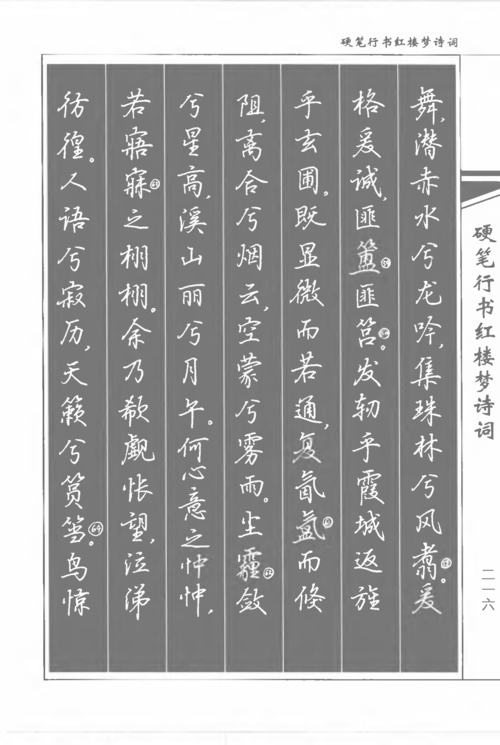 硬笔行书红楼梦诗词
舞，潜赤水兮龙吟，集珠林兮风翥。爰
格爰诚，匪簠匪筥。发轫乎霞城，返旌
乎玄圃。既显微而若通，复氤氲而倏
阻，离合兮烟云，空蒙兮雾雨。尘霾敛
兮星高，溪山丽兮月午。何心意之忡忡，
若寤寐之栩栩。余乃欷歔怅望，泣涕
彷徨。人语兮寂历，天籁兮筼筜。鸟惊
硬笔行书红楼梦诗词
二一六